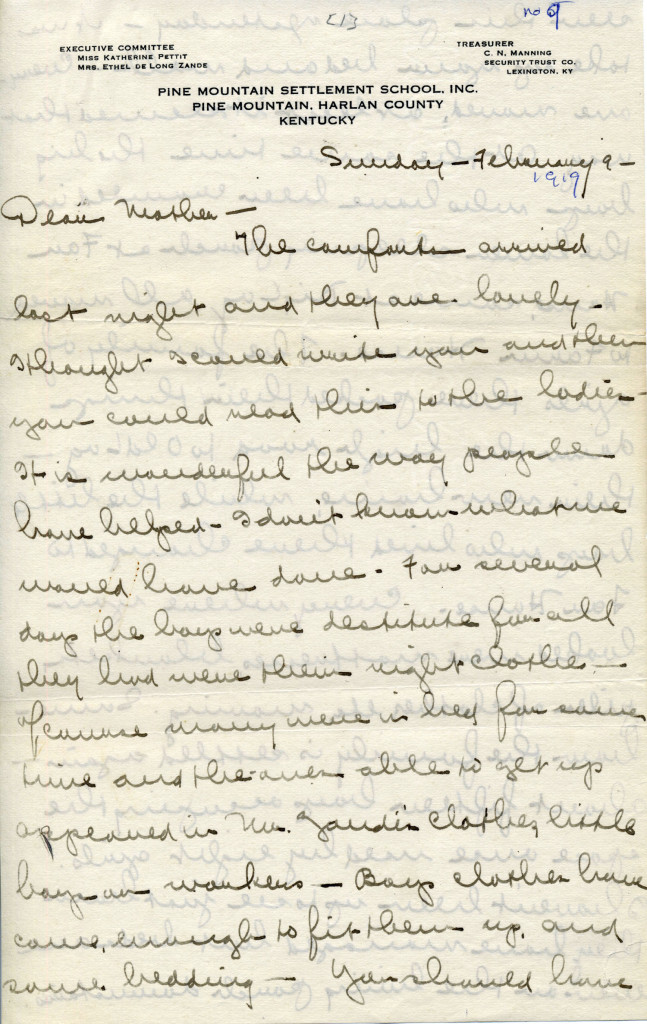 [1]
no 5
EXECUTIVE COMMITTEE
MISS KATHERINE PETTIT
MRS. ETHEL DE LONG ZANDE
TREASURER
C. N. MANNING
SECURITY TRUST CO.
LEXINGTON, KY
PINE MOUNTAIN SETTLEMENT SCHOOL, INC.
PINE MOUNTAIN, HARLAN COUNTY
KENTUCKY
Sunday - February 9 -
1919
Dear Mother -
The comforts arrived
last night and they are lovely -
I thought I could write you and then
you could read this to the ladies -
It is wonderful the way people
have helped - I don't know what we
would have done - For several
days the boys were destitute for all
they had were their night clothes -
Of course many were in bed for some
time and the ones able to get up
appeared in Mr. Zande's clothes, little
boys or workers - Boys clothes have
come, enough to fit them up, and
some bedding - You should have